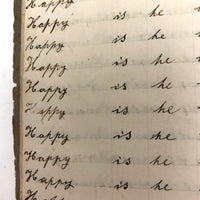 Happy
Happy is he
Happy is he
Happy is he
Happy is he
Happy is he
Happy is he
Happy is he
Happy is he
Happy is he